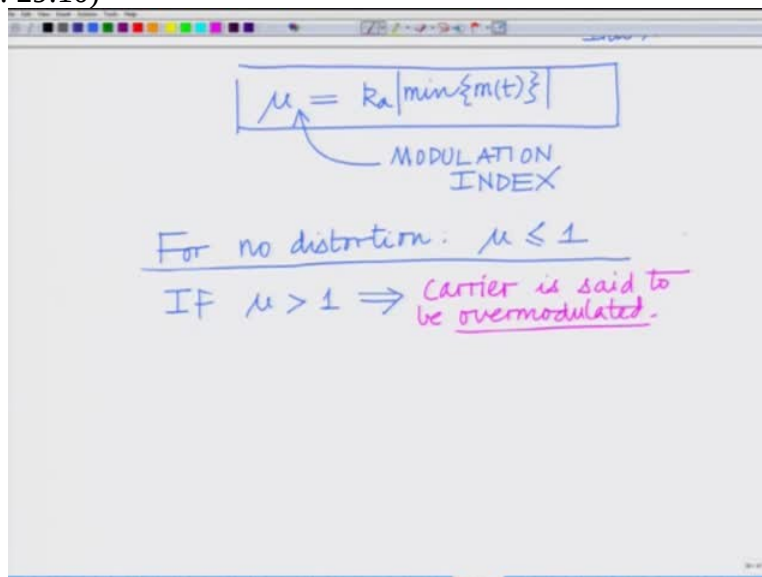 μ = ka|min{m(t)}|
MODULATION
INDEX
For no distortion: μ ≤ 1
IF μ > 1 ⇒ Carrier is said to
be overmodulated.